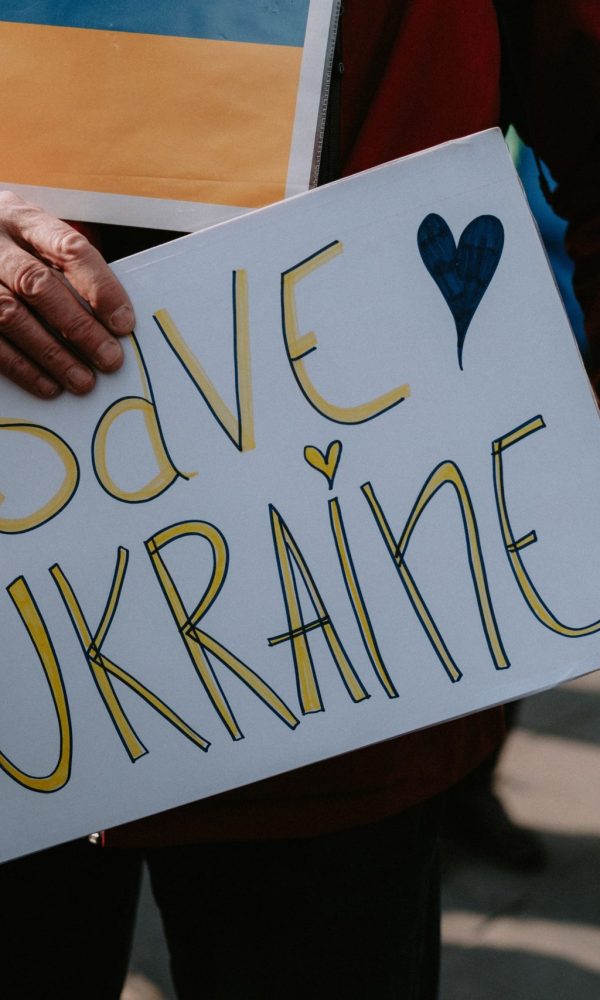 SaVE
UKRAINE